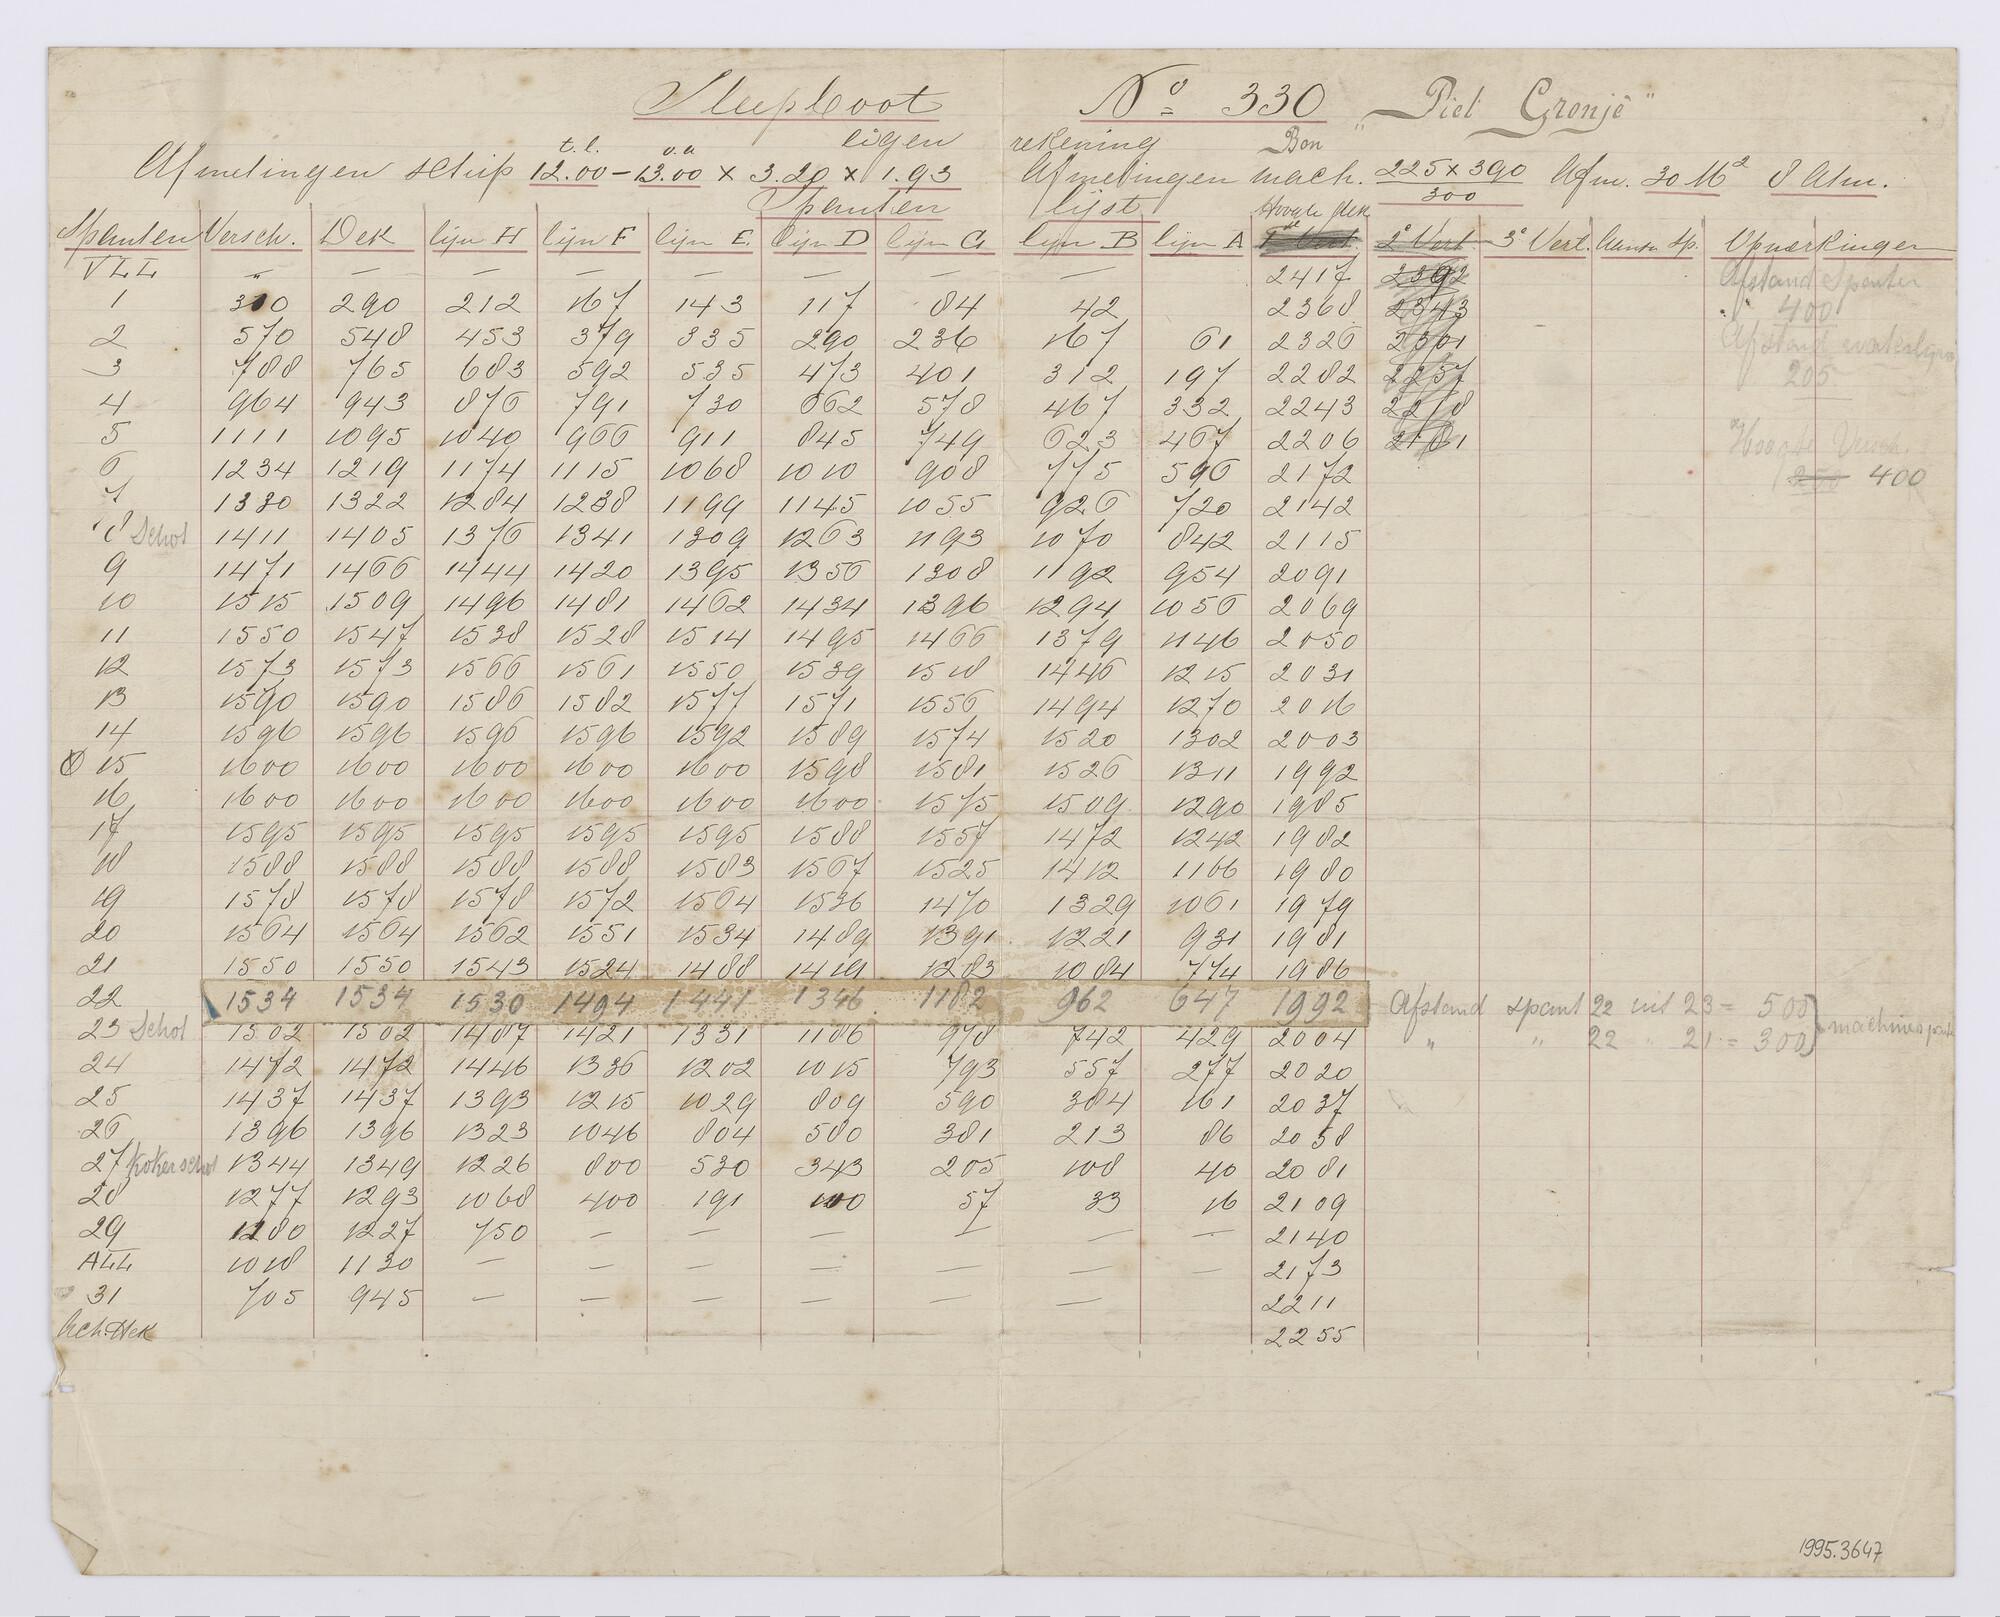 Sleepboot No 330 "Piet Cronjé"
eigen rekening
t.l. o.a Bon
Afmetingen schip 12.00 - 13.00 x 3.20 x 1.93 Afmetingen mach. 225 x 390 Afm. 30 M2 8 Atm.
300
Spanten lijst
Hoogte dek
Spanten Versch. Dek lijn H lijn F lijn E. lijn D lijn G lijn B lijn A 1e Vert. 2e Vert. 3e Vert. sp. Opmerkingen
VLL — — — — — — — — 2417 2392 Afstand Spanten
1 300 290 212 167 143 117 84 42 2368 2343 400
2 570 548 453 379 335 290 236 167 61 2326 2301 Afstand
3 788 765 683 592 535 473 401 312 197 2282 2257 205
4 964 943 876 791 730 662 578 467 332 2243 2218
5 1111 1095 1040 966 911 845 749 623 467 2206 2181 Hoogte Versch.
6 1234 1219 1174 1115 1068 1010 908 775 596 2172 250 400
7 1330 1322 1284 1238 1199 1145 1055 926 720 2142
8 Schot 1411 1405 1376 1341 1309 1263 1193 1070 842 2115
9 1471 1466 1444 1420 1395 1356 1308 1192 954 2091
10 1515 1509 1496 1481 1462 1434 1396 1294 1056 2069
11 1550 1547 1538 1528 1514 1495 1466 1379 1146 2050
12 1573 1573 1566 1561 1550 1539 1518 1446 1215 2031
13 1590 1590 1586 1582 1577 1571 1556 1494 1270 2016
14 1596 1596 1596 1596 1592 1589 1574 1520 1302 2003
15 1600 1600 1600 1600 1600 1598 1581 1526 1311 1992
16 1600 1600 1600 1600 1600 1600 1575 1509 1290 1985
17 1595 1595 1595 1595 1595 1588 1557 1472 1242 1982
18 1588 1588 1588 1588 1583 1567 1525 1412 1166 1980
19 1578 1578 1578 1572 1564 1536 1470 1329 1061 1979
20 1564 1564 1562 1551 1534 1489 1391 1221 931 1981
21 1550 1550 1543 1524 1488 1419 1283 1084 774 1986
22 1534 1534 1530 1494 1441 1346 1182 962 647 1992 Afstand spant 22 uit 23 = 500
23 Schot 1502 1502 1487 1421 1331 1186 978 742 429 2004 " " 22 " 21 = 300
24 1472 1472 1446 1336 1202 1015 793 557 277 2020
25 1437 1437 1393 1215 1029 809 590 384 161 2037
26 1396 1396 1323 1046 804 580 381 213 86 2058
27 kokerschot 1344 1349 1226 800 530 343 205 108 40 2081
28 1277 1293 1068 400 191 100 57 33 16 2109
29 1180 1227 750 — — — — — — 2140
ALL 1018 1130 — — — — — — — 2173
31 705 945 — — — — — — 2211
Ach. Hek 2255
1995.3647